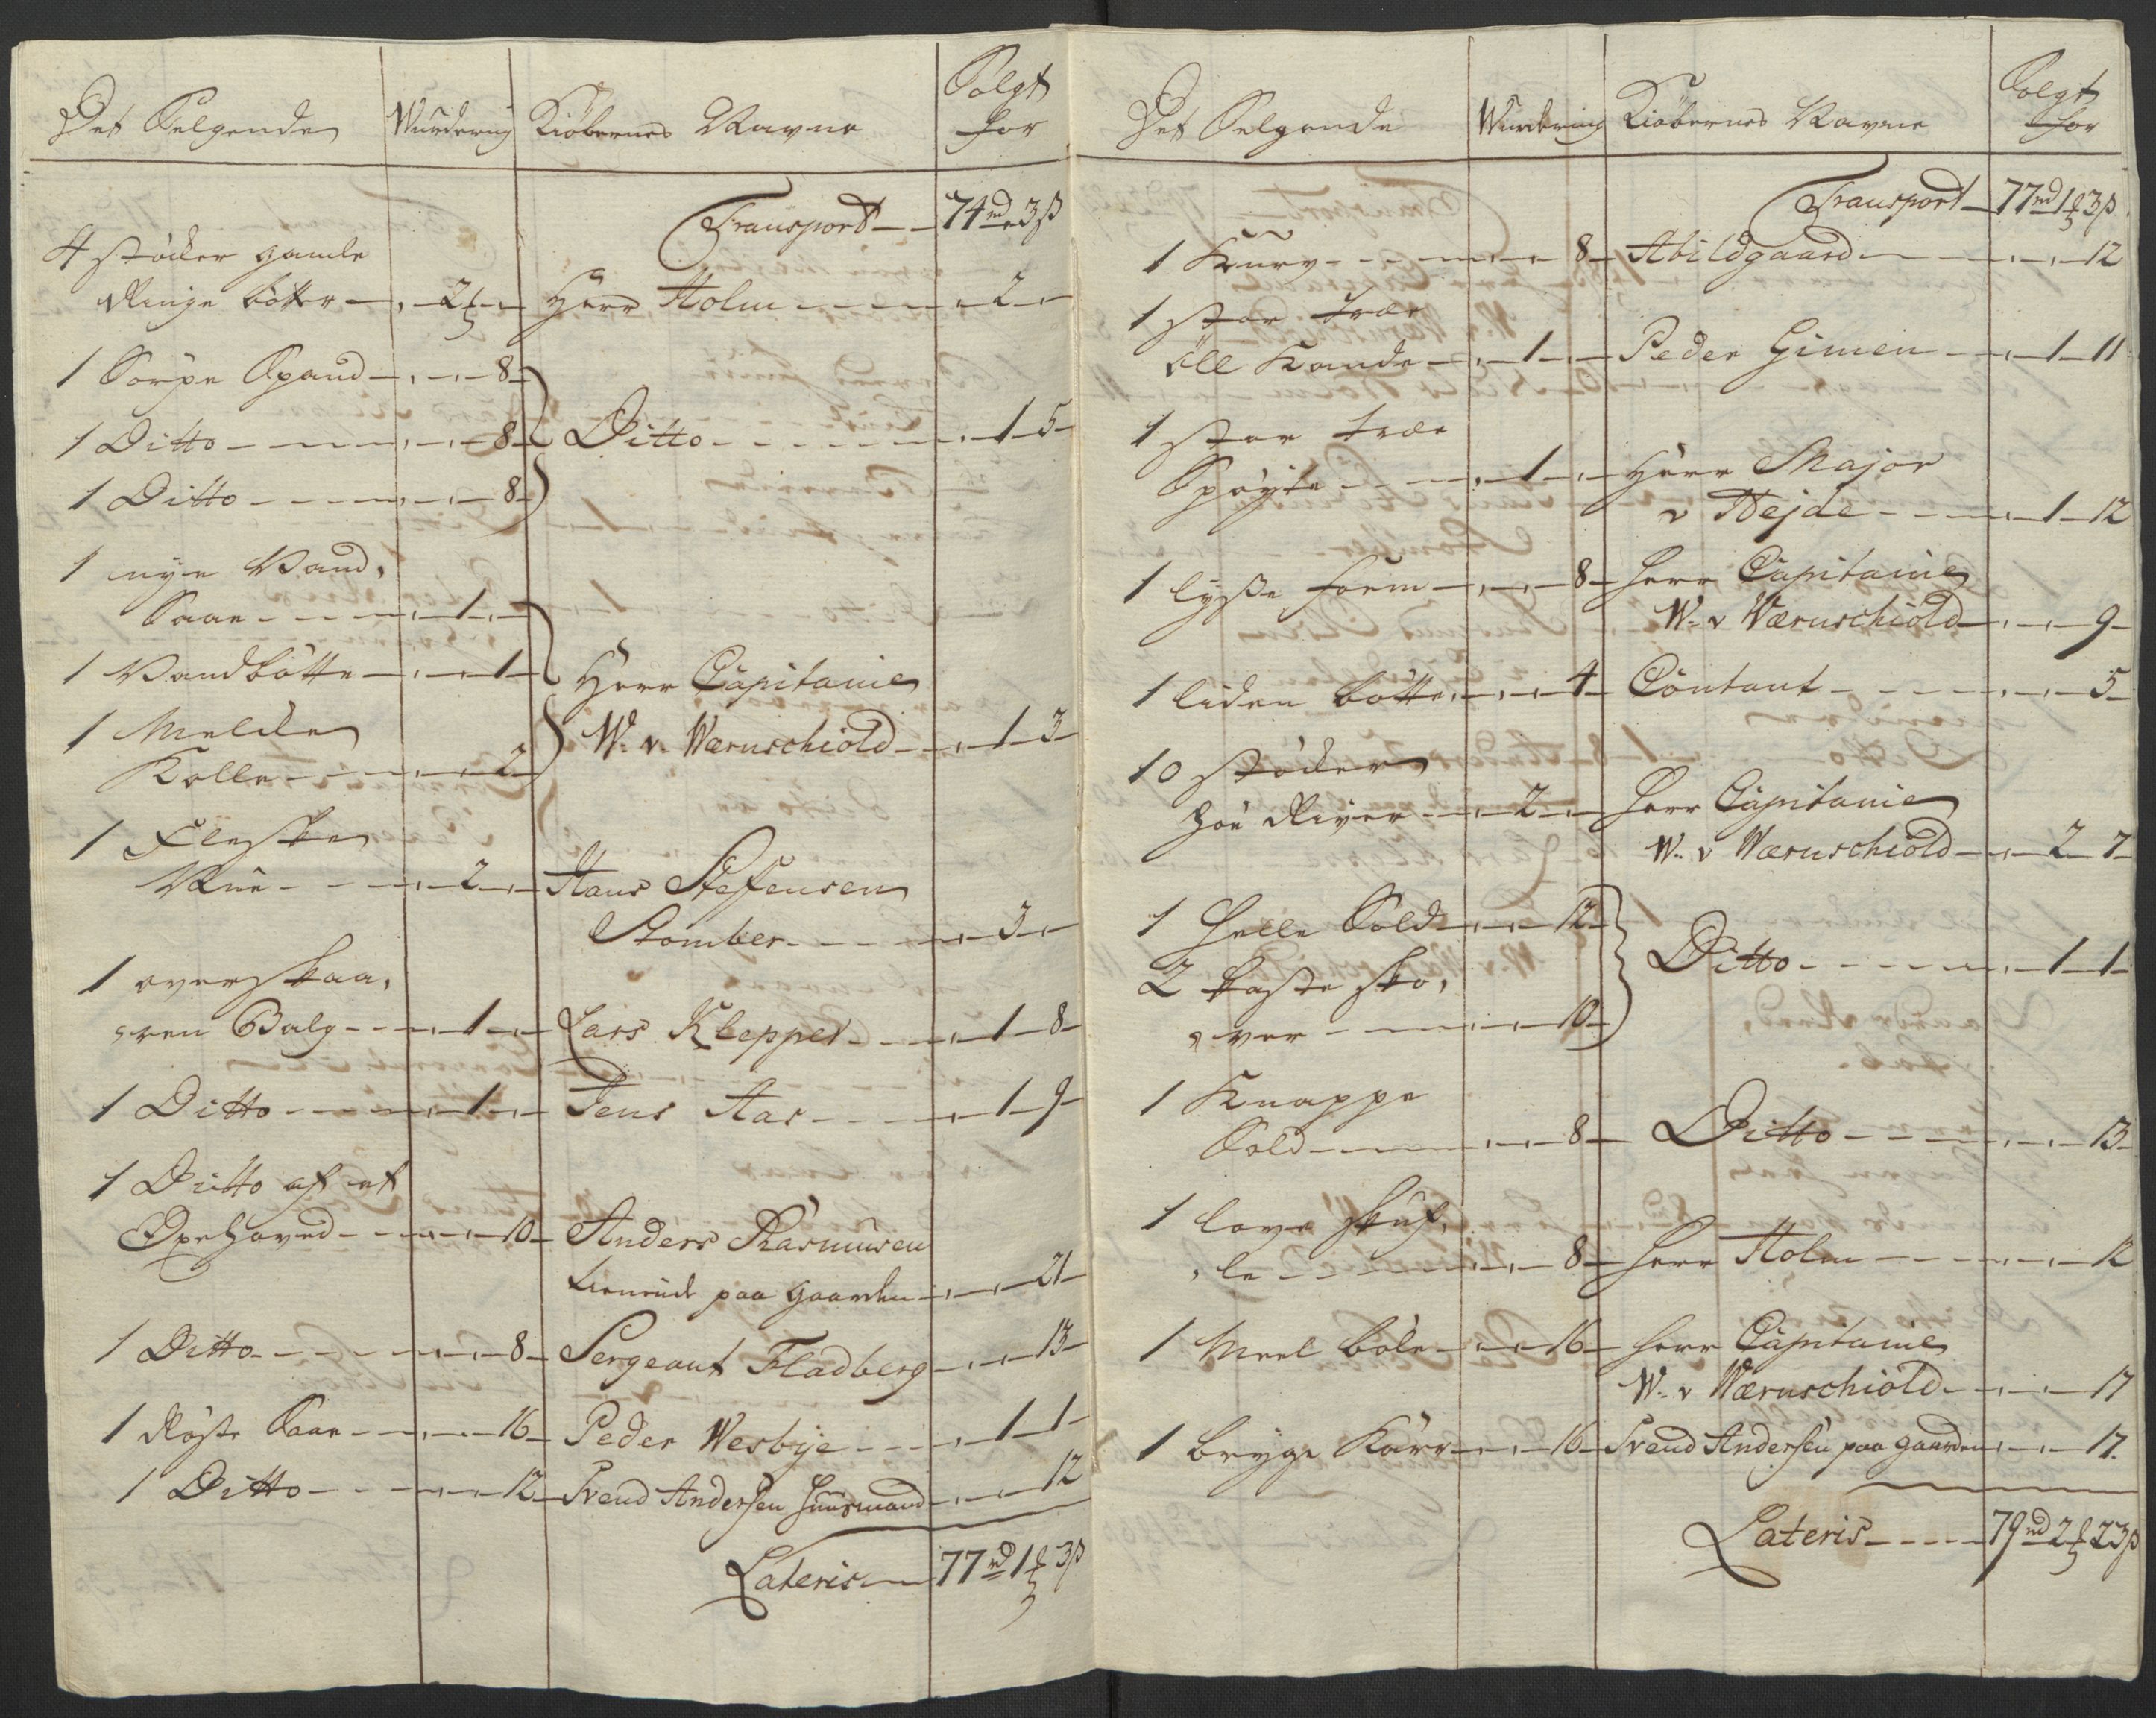 Det Selgende Wurdering Kiöbernes Navne Solgt for
Transport 74 rd - 3 ß
4 støcker gamle
Ringe bötter - 2 - Herr Holm - 2 -
1 Sörpe Spand - 8 -
1 Ditto - 8 - Ditto - 1 - 5 -
1 Ditto - 8 -
1 nye Vand,
Saae - 1 -
1 Vandbötte - 1 - Herr Capitaine
1 Melcke W. v. Wærnschiold - 1 - 3 -
Kolle - 2 -
1 Fleske
- 2 - Hans Stefensen
Stomber - 3 -
1 overskaa,
,ren Balg - 1 - Lars Klepper - 1 - 8 -
1 Ditto - 1 - Jens Aas - 1 - 9 -
1 Ditto af et
Oxehoved - 10 - Anders Rasmusen
paa gaarden - 21 -
1 Ditto - 8 - Sergeant Fladberg - 13 -
1 Röste Saae - 16 - Peder Wesbye - 1 - 1 -
1 Ditto - 12 - Svend Andersen Huusmand - 12
Lateris 77 rd 1 3 ß
Det Selgende Wurdering Kiöbernes Navne Solgt for
Transport 77 rd 1 3 ß
1 Kurv - 8 - Abildgaard - 12
1 stor træe
öll Kande - 1 - Peder Gimen - 1 - 11
1 stor træe
Spöyte - 1 - Herr Major
v Hejde - 1 - 12
1 lysse form - 8 - Herr Capitaine
W. v Wærnschiold - 9 -
1 liden bötte - 4 - Contant - 5 -
10 støcker
höe River - 2 - Herr Capitaine
W. v Wærnschiold - 2 - 7 -
1 Helle Sold - 12 -
2 kaste sko, Ditto - 1 - 1 -
,ver - 10 -
1 Knappe
Sold - 8 - Ditto - 13 -
1 love skuf,
,le - 8 - Herr Holm - 12
1 Meel böle - 16 - Herr Capitaine
W. v Wærnschiold - 17
1 brygge Karr - 16 - Svend Andersen paa gaarden - 17.
Lateris 79 rd 2 23 ß